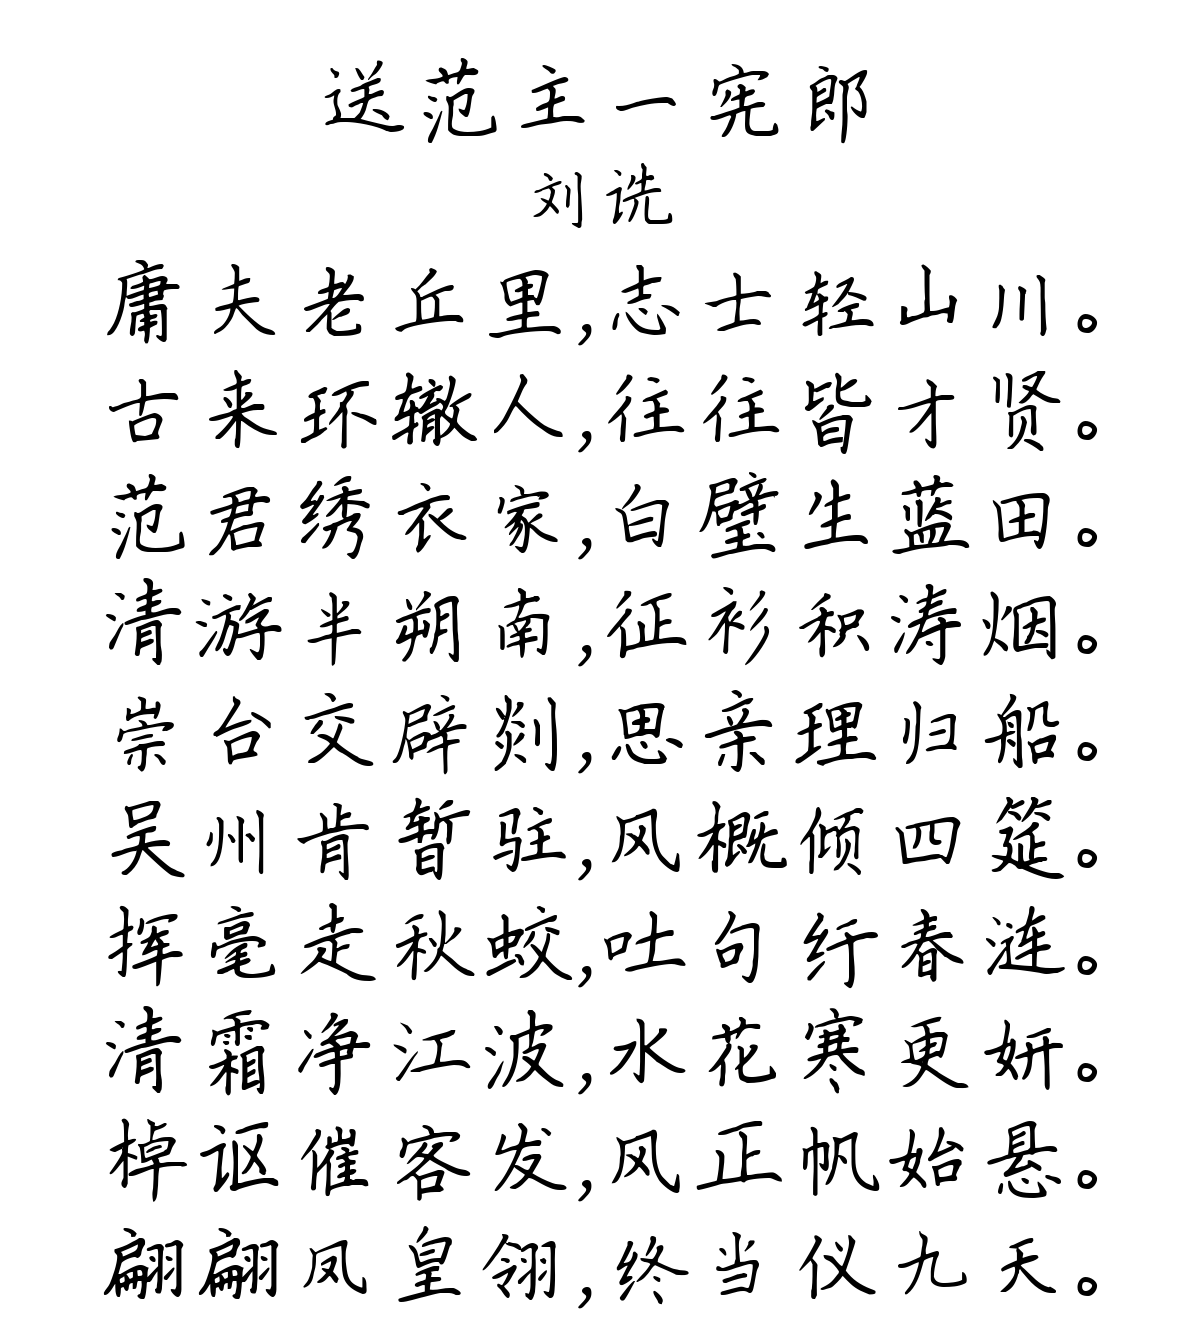 送范主一宪郎
刘诜
庸夫老丘里,志士轻山川。
古来环辙人,往往皆才贤。
范君绣衣家,白璧生蓝田。
清游半朔南,征衫积涛烟。
崇台交辟剡,思亲理归船。
吴州肯暂驻,风概倾四筵。
挥毫走秋蛟,吐句纡春涟。
清霜净江波,水花寒更妍。
棹讴催客发,风正帆始悬。
翩翩凤皇翎,终当仪九天。